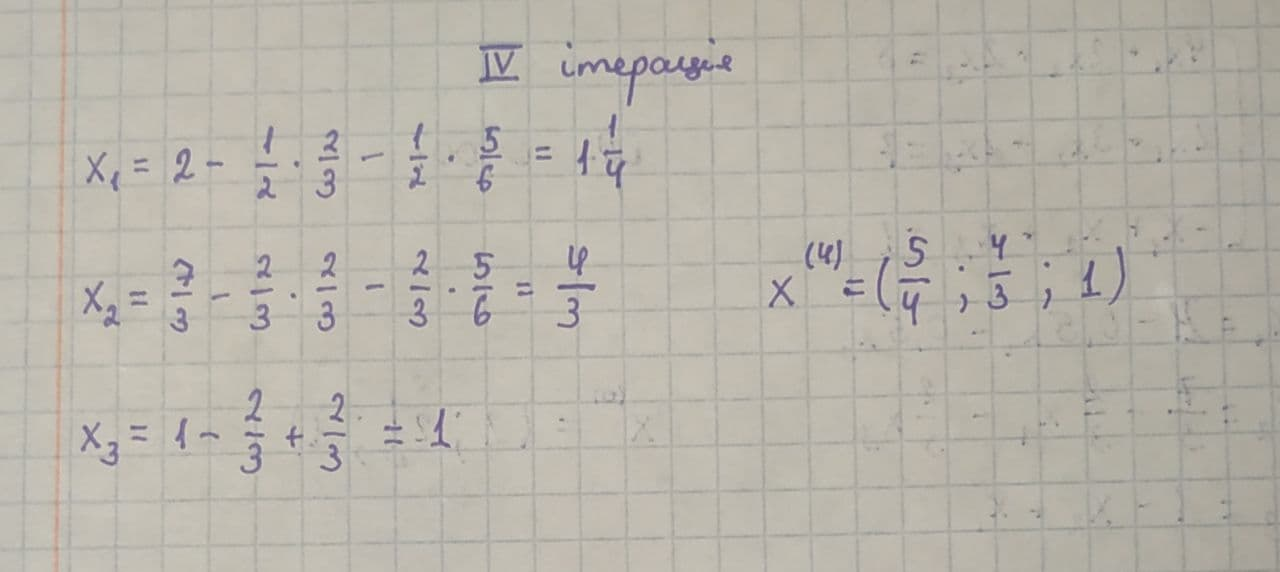 IV ітерація
x₁ = 2 - 1/2 · 2/3 - 1/2 · 5/6 = 1 1/4
x₂ = 7/3 - 2/3 · 2/3 - 2/3 · 5/6 = 4/3
x⁽⁴⁾ = (5/4 ; 4/3 ; 1)
x₃ = 1 - 2/3 + 2/3 = 1